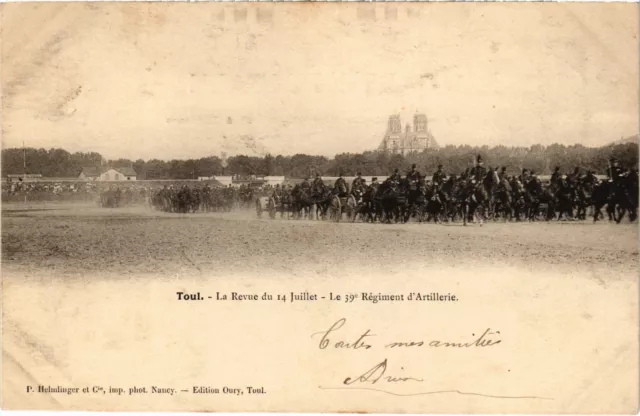 Toul. - La Revue du 14 Juillet - Le 39e Régiment d'Artillerie.
Toutes mes amitiés
Adrien
P. Helmlinger et Cie, imp. phot. Nancy. — Edition Oury, Toul.